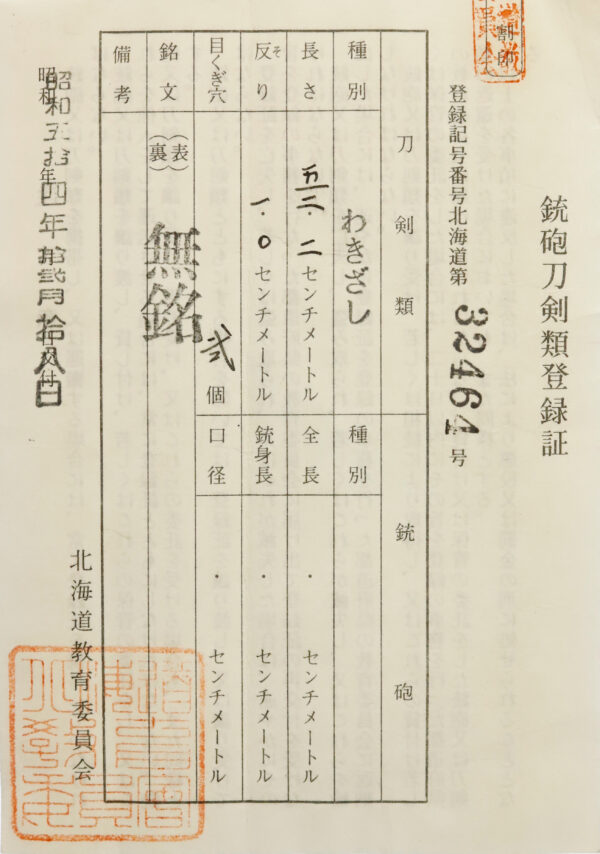 銃砲刀剣類登録証
登録記号番号北海道第 32464 号
刀剣類
種別 わきざし
長さ 五二・二センチメートル
反り そ 一・〇センチメートル
目くぎ穴 弐 個
銘文 (表) (裏) 無銘
備考
銃砲
種別
全長 ・センチメートル
銃身長 ・センチメートル
口径 ・センチメートル
昭和五拾四年拾弐月拾八日交付
北海道教育委員会
割印